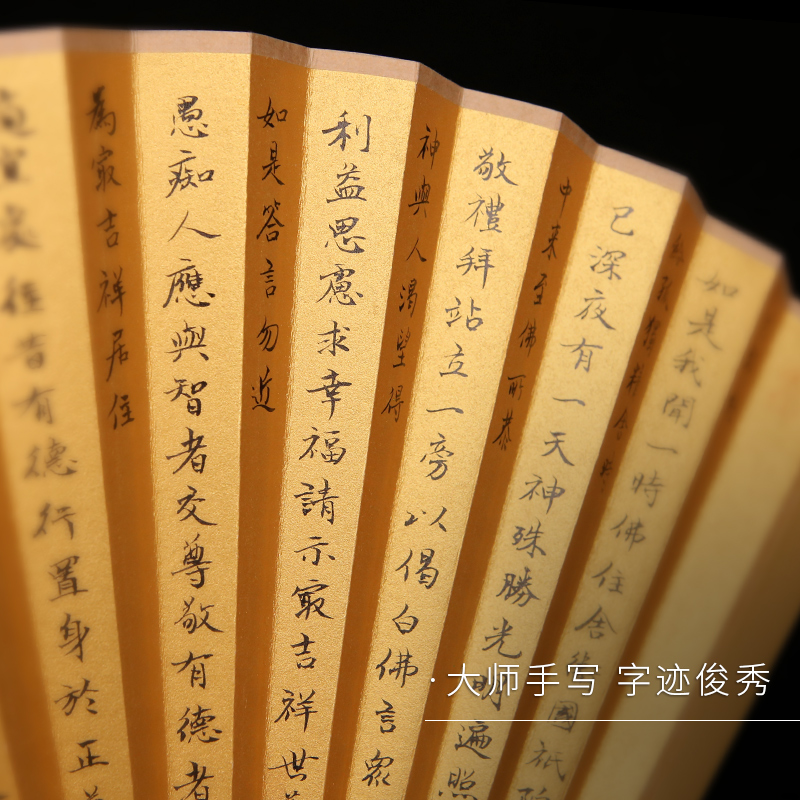 如是我聞一時佛住舍衛國祇
孤獨精舍時
已深夜有一天神殊勝光明遍照
中來至佛所恭
敬禮拜站立一旁以偈白佛言眾
神與人渴望得
利益思慮求幸福請示最吉祥世
如是答言勿近
愚痴人應與智者交尊敬有德者
為最吉祥居住
適宜處往昔有德行置身於正
·大师手写 字迹俊秀